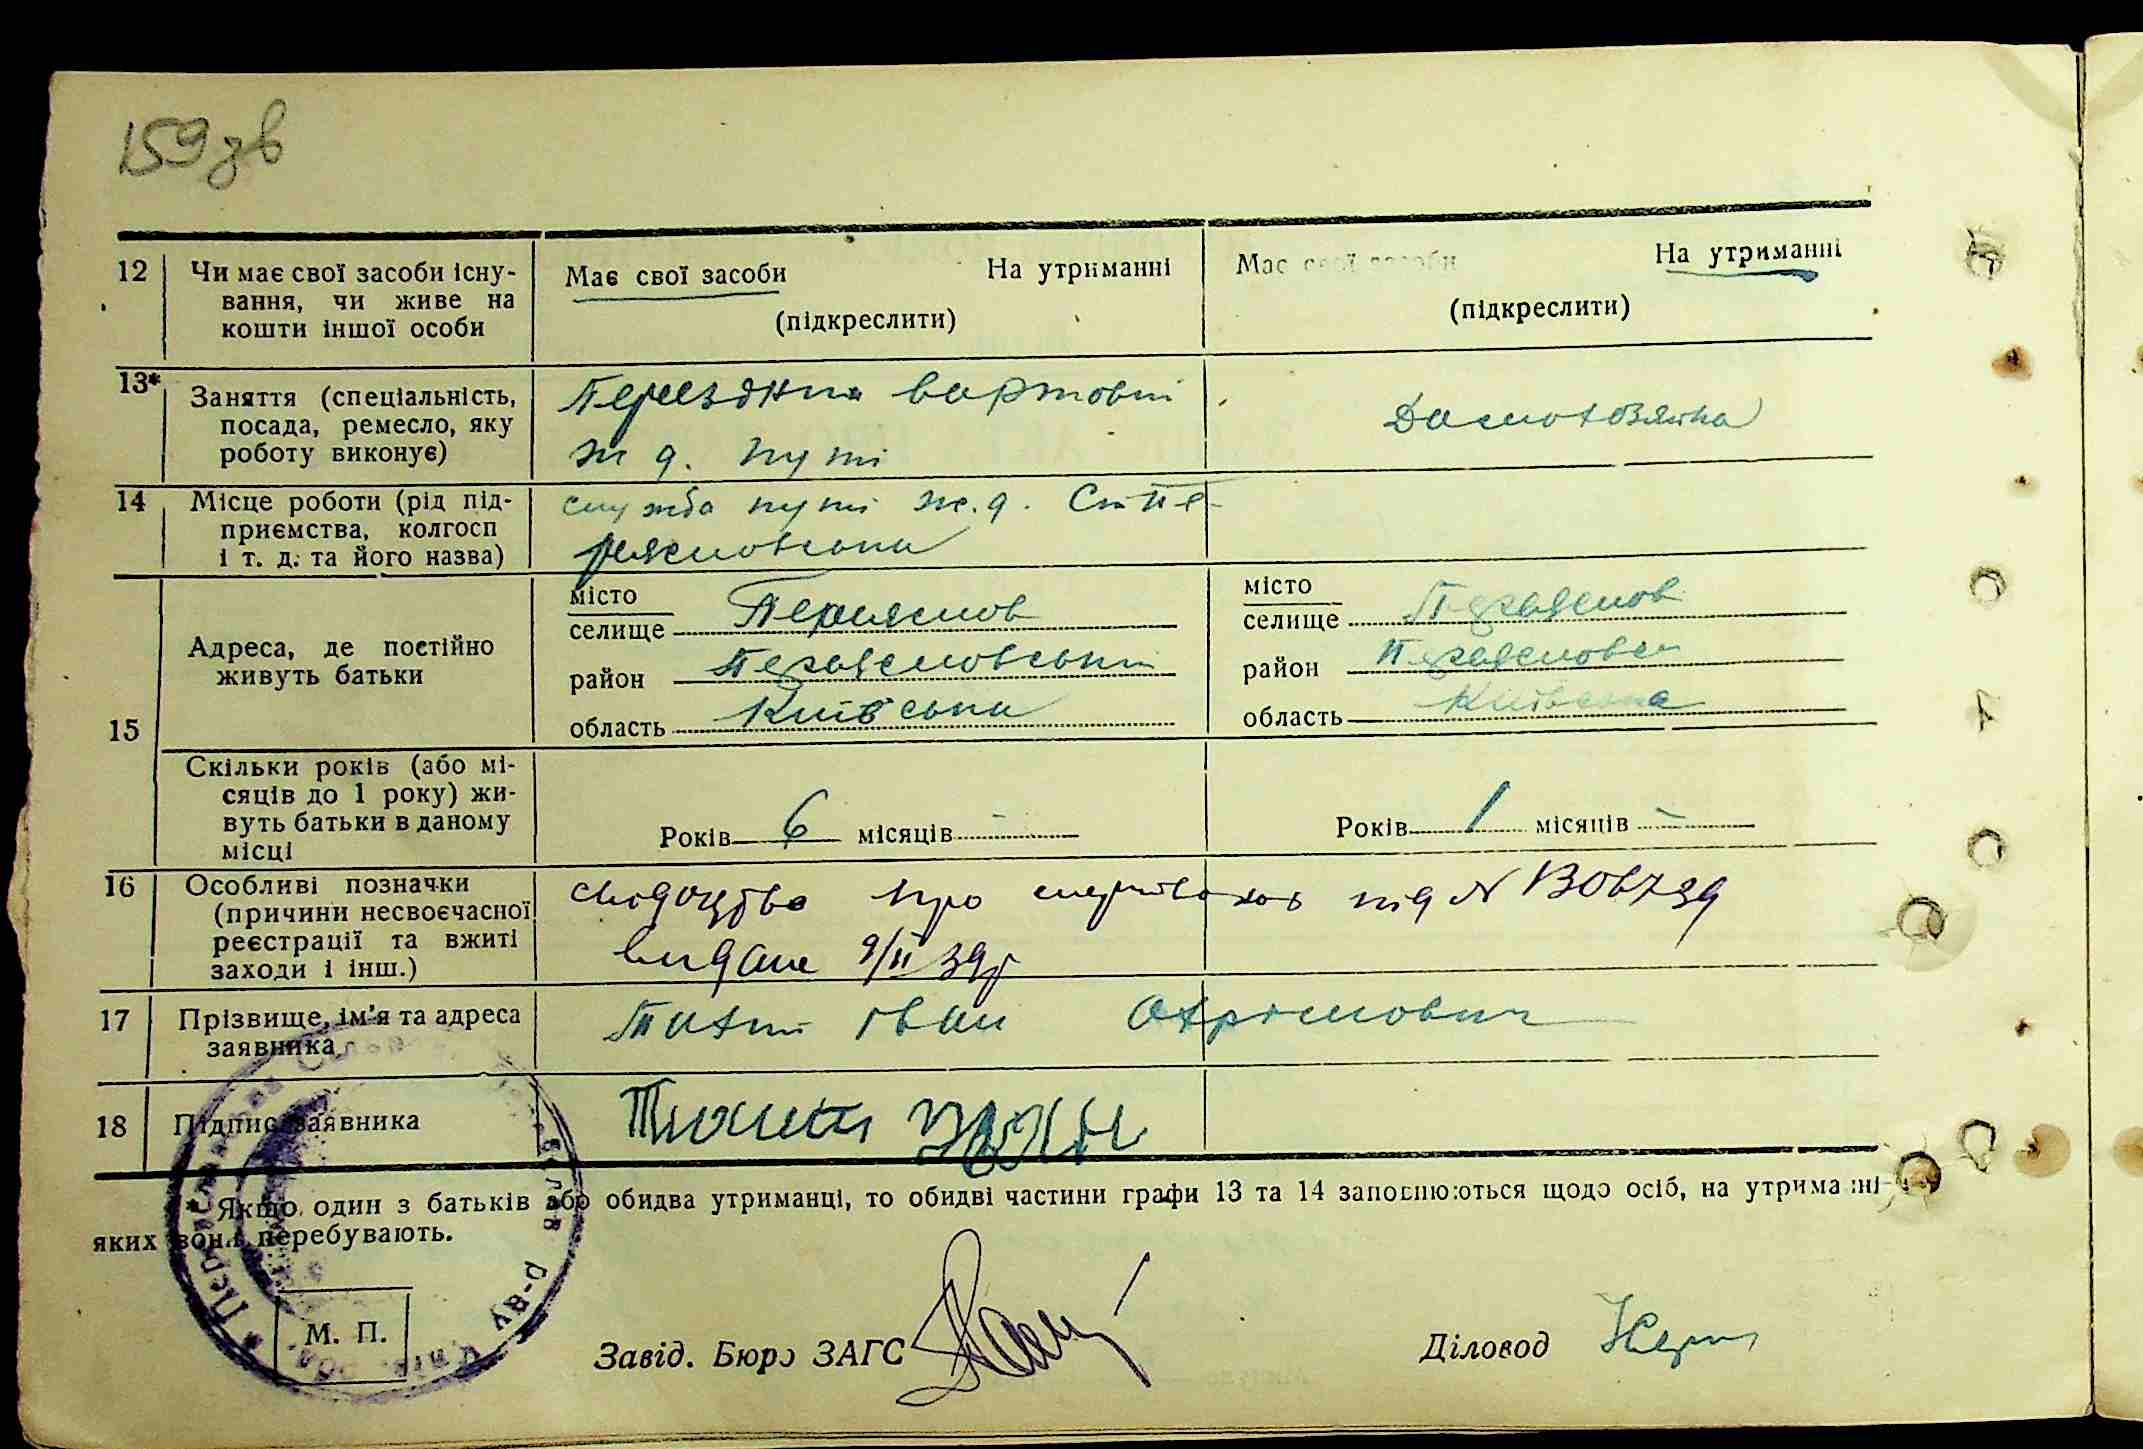 159 зв
12 Чи має свої засоби існу-
вання, чи живе на
кошти іншої особи
Має свої засоби На утриманні
(підкреслити)
Має свої засоби На утриманні
(підкреслити)
13* Заняття (спеціальність,
посада, ремесло, яку
роботу виконує)
вартовий
ж д. путі
Домохозяйка
14 Місце роботи (рід під-
приємства, колгосп
і т. д. та його назва)
служба путі ж.д. Ст Пе-
реяславська
15
Адреса, де постійно
живуть батьки
місто
селище Переяслов
район Переясловський
область Київська
місто
селище Переяслов
район Переясловськ
область Київська
Скільки років (або мі-
сяців до 1 року) жи-
вуть батьки в даному
місці
Років 6 місяців -
Років 1 місяців -
16 Особливі позначки
(причини несвоєчасної
реєстрації та вжиті
заходи і інш.)
свідоцтво про під №
видане 9/II 39р
17 Прізвище, ім'я та адреса
заявника
Тихий Іван Охрімович
18 Підпис заявника
Тихий
* Якщо один з батьків або обидва утриманці, то обидві частини графи 13 та 14 заповнюються щодо осіб, на утриманні
яких вони перебувають.
М. П.
Завід. Бюро ЗАГС
Діловод
р-ну